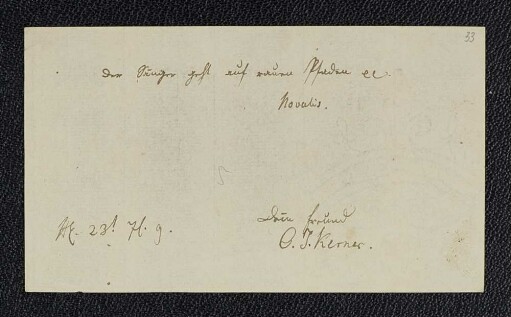 33
Der Sänger geht auf rauen Pfaden ec.
Novalis.
Dein Freund
C. J. Kerner.